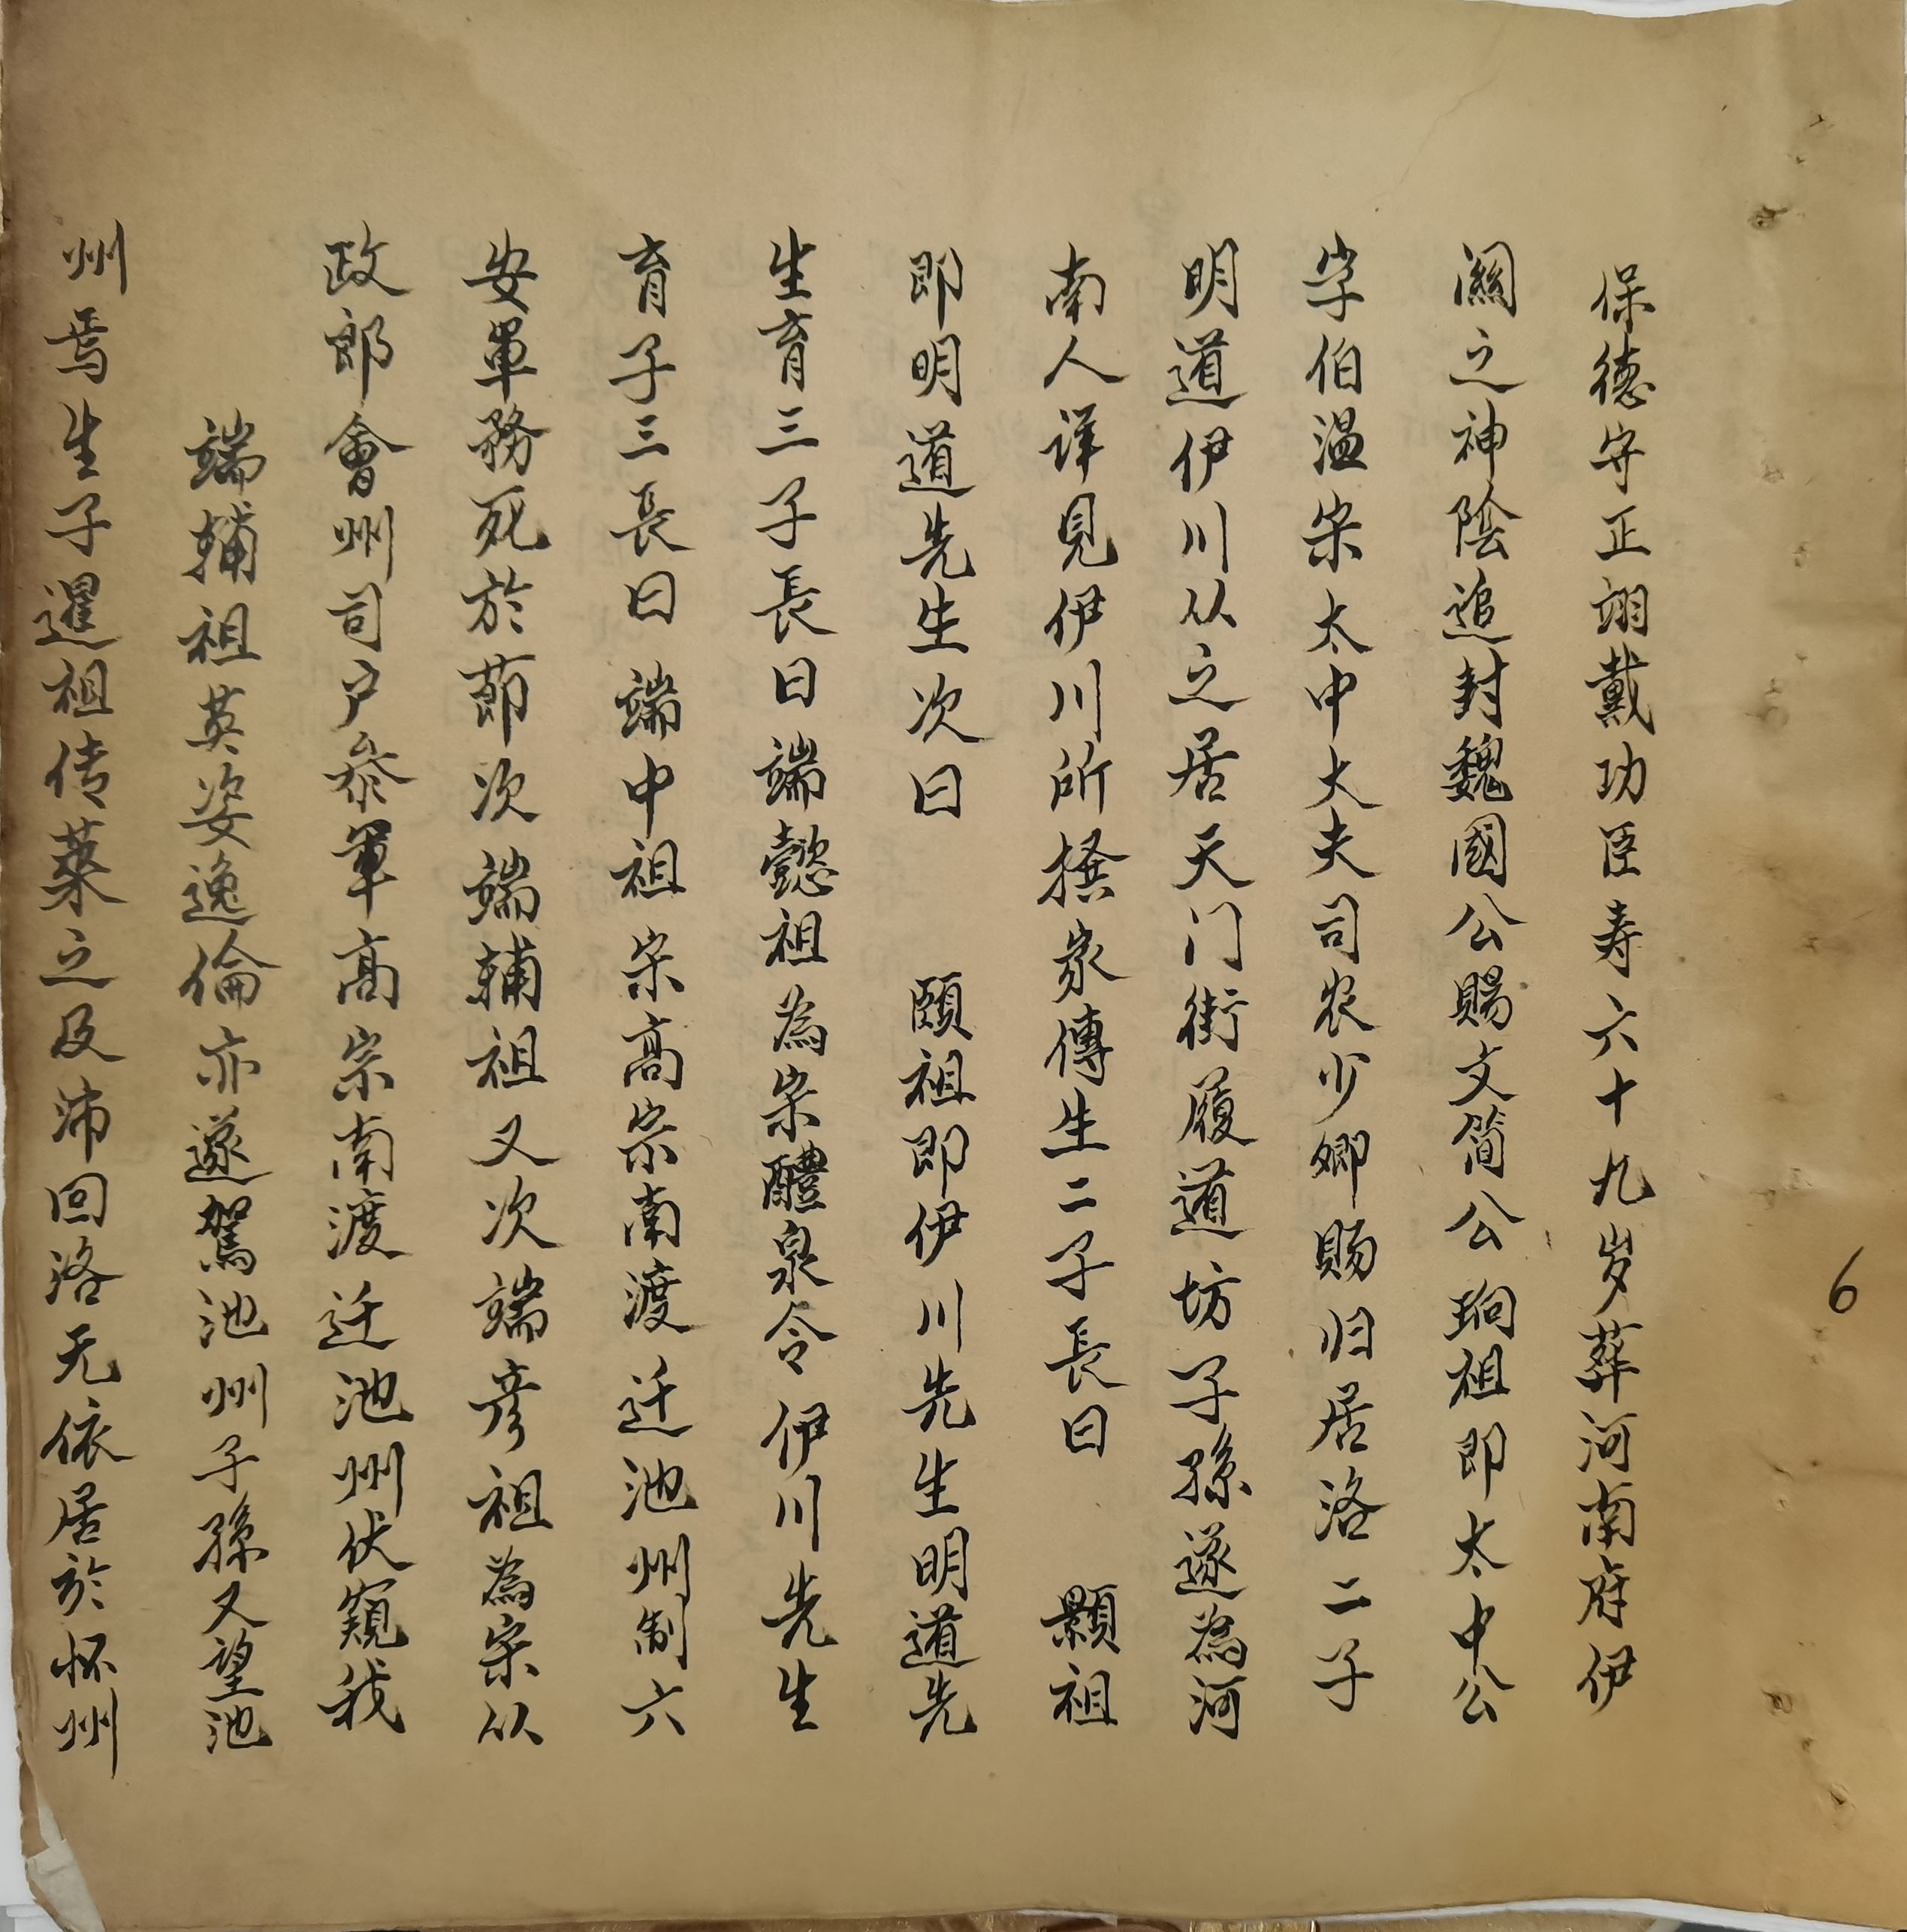 保德守正翊戴功臣寿六十九岁葬河南府伊
闕之神陰追封魏國公賜文简公珦祖即太中公
字伯温宋太中大夫司农少卿賜归居洛二子
明道伊川从之居天门街履道坊子孫遂為河
南人详見伊川所撰家傳生二子長曰 顥祖
即明道先生次曰 頤祖即伊川先生明道先
生育三子長曰端懿祖為宋醴泉令伊川先生
育子三長曰端中祖宋高宗南渡迁池州制六
安軍務死於莭次端輔祖又次端彦祖為宋从
政郎會州司户叅軍高宗南渡迁池州伏窺我
端輔祖英姿逸倫亦遂駕池州子孫又望池
州焉生子暹祖传蕖之及沛回洛无依居於怀州
6